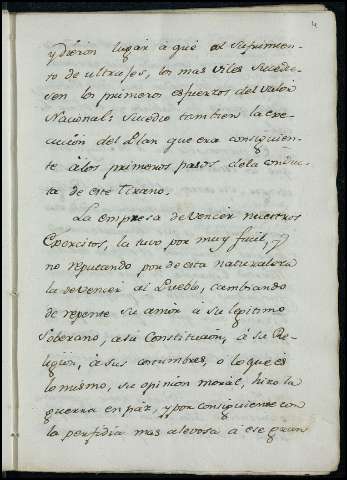 4
y dieron lugar á que al sufrimien-
to de ultrajes, los mas viles sucedie-
sen los primeros esfuerzos del valor
Nacional: sucedio tambien la exe-
cucion del Plan que era consiguien-
te á los primeros pasos dela conduc-
ta de este Tirano.
La empresa de vencer nuestros
Exercitos, la tuvo por muy facil, y
no reputando por de esta naturaleza
la de vencer al Pueblo, cambiando
de repente su amor á su legitimo
Soberano, ala Constitucion, á su Re-
ligion, á sus costumbres, ó lo que es
lo mismo, su opinion moral, hizo la
guerra en paz, y por consiguiente con
la perfidia mas alevosa á ese gran